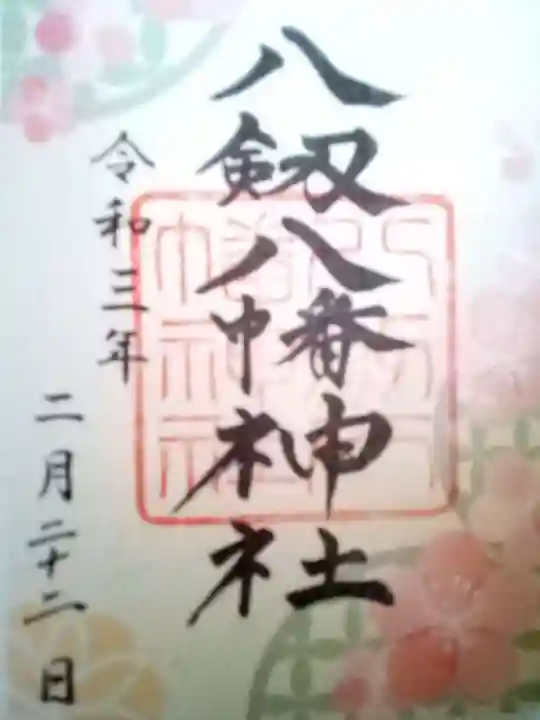 八剱八幡神社
令和三年
二月二十二日